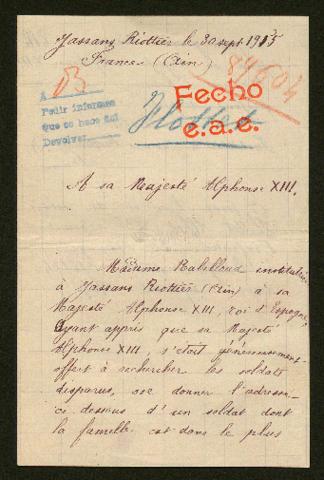 Jassans Riottier le 30 sept 1915
France (Ain)
84604
A
Pedir informes
Que se hace así
Devolver
Fecho
e.a.e.
A sa Majesté Alphonse XIII.
Madame Rabilloud institutrice
à Jassans Riottier (Ain) à sa
Majesté Alphonse XIII, roi d'Espagne,
Ayant appris que sa Majesté
Alphonse XIII s'était généreusement
offert à rechercher les soldats
disparus, ose donner l'adresse
ci-dessous d'un soldat dont
la famelle est dans le plus